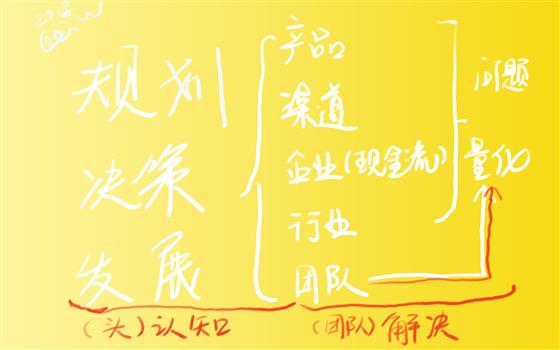 规划
决策
发展
产品
渠道
企业(现金流)
行业
团队
问题
量化
(头)认知
(团队)解决